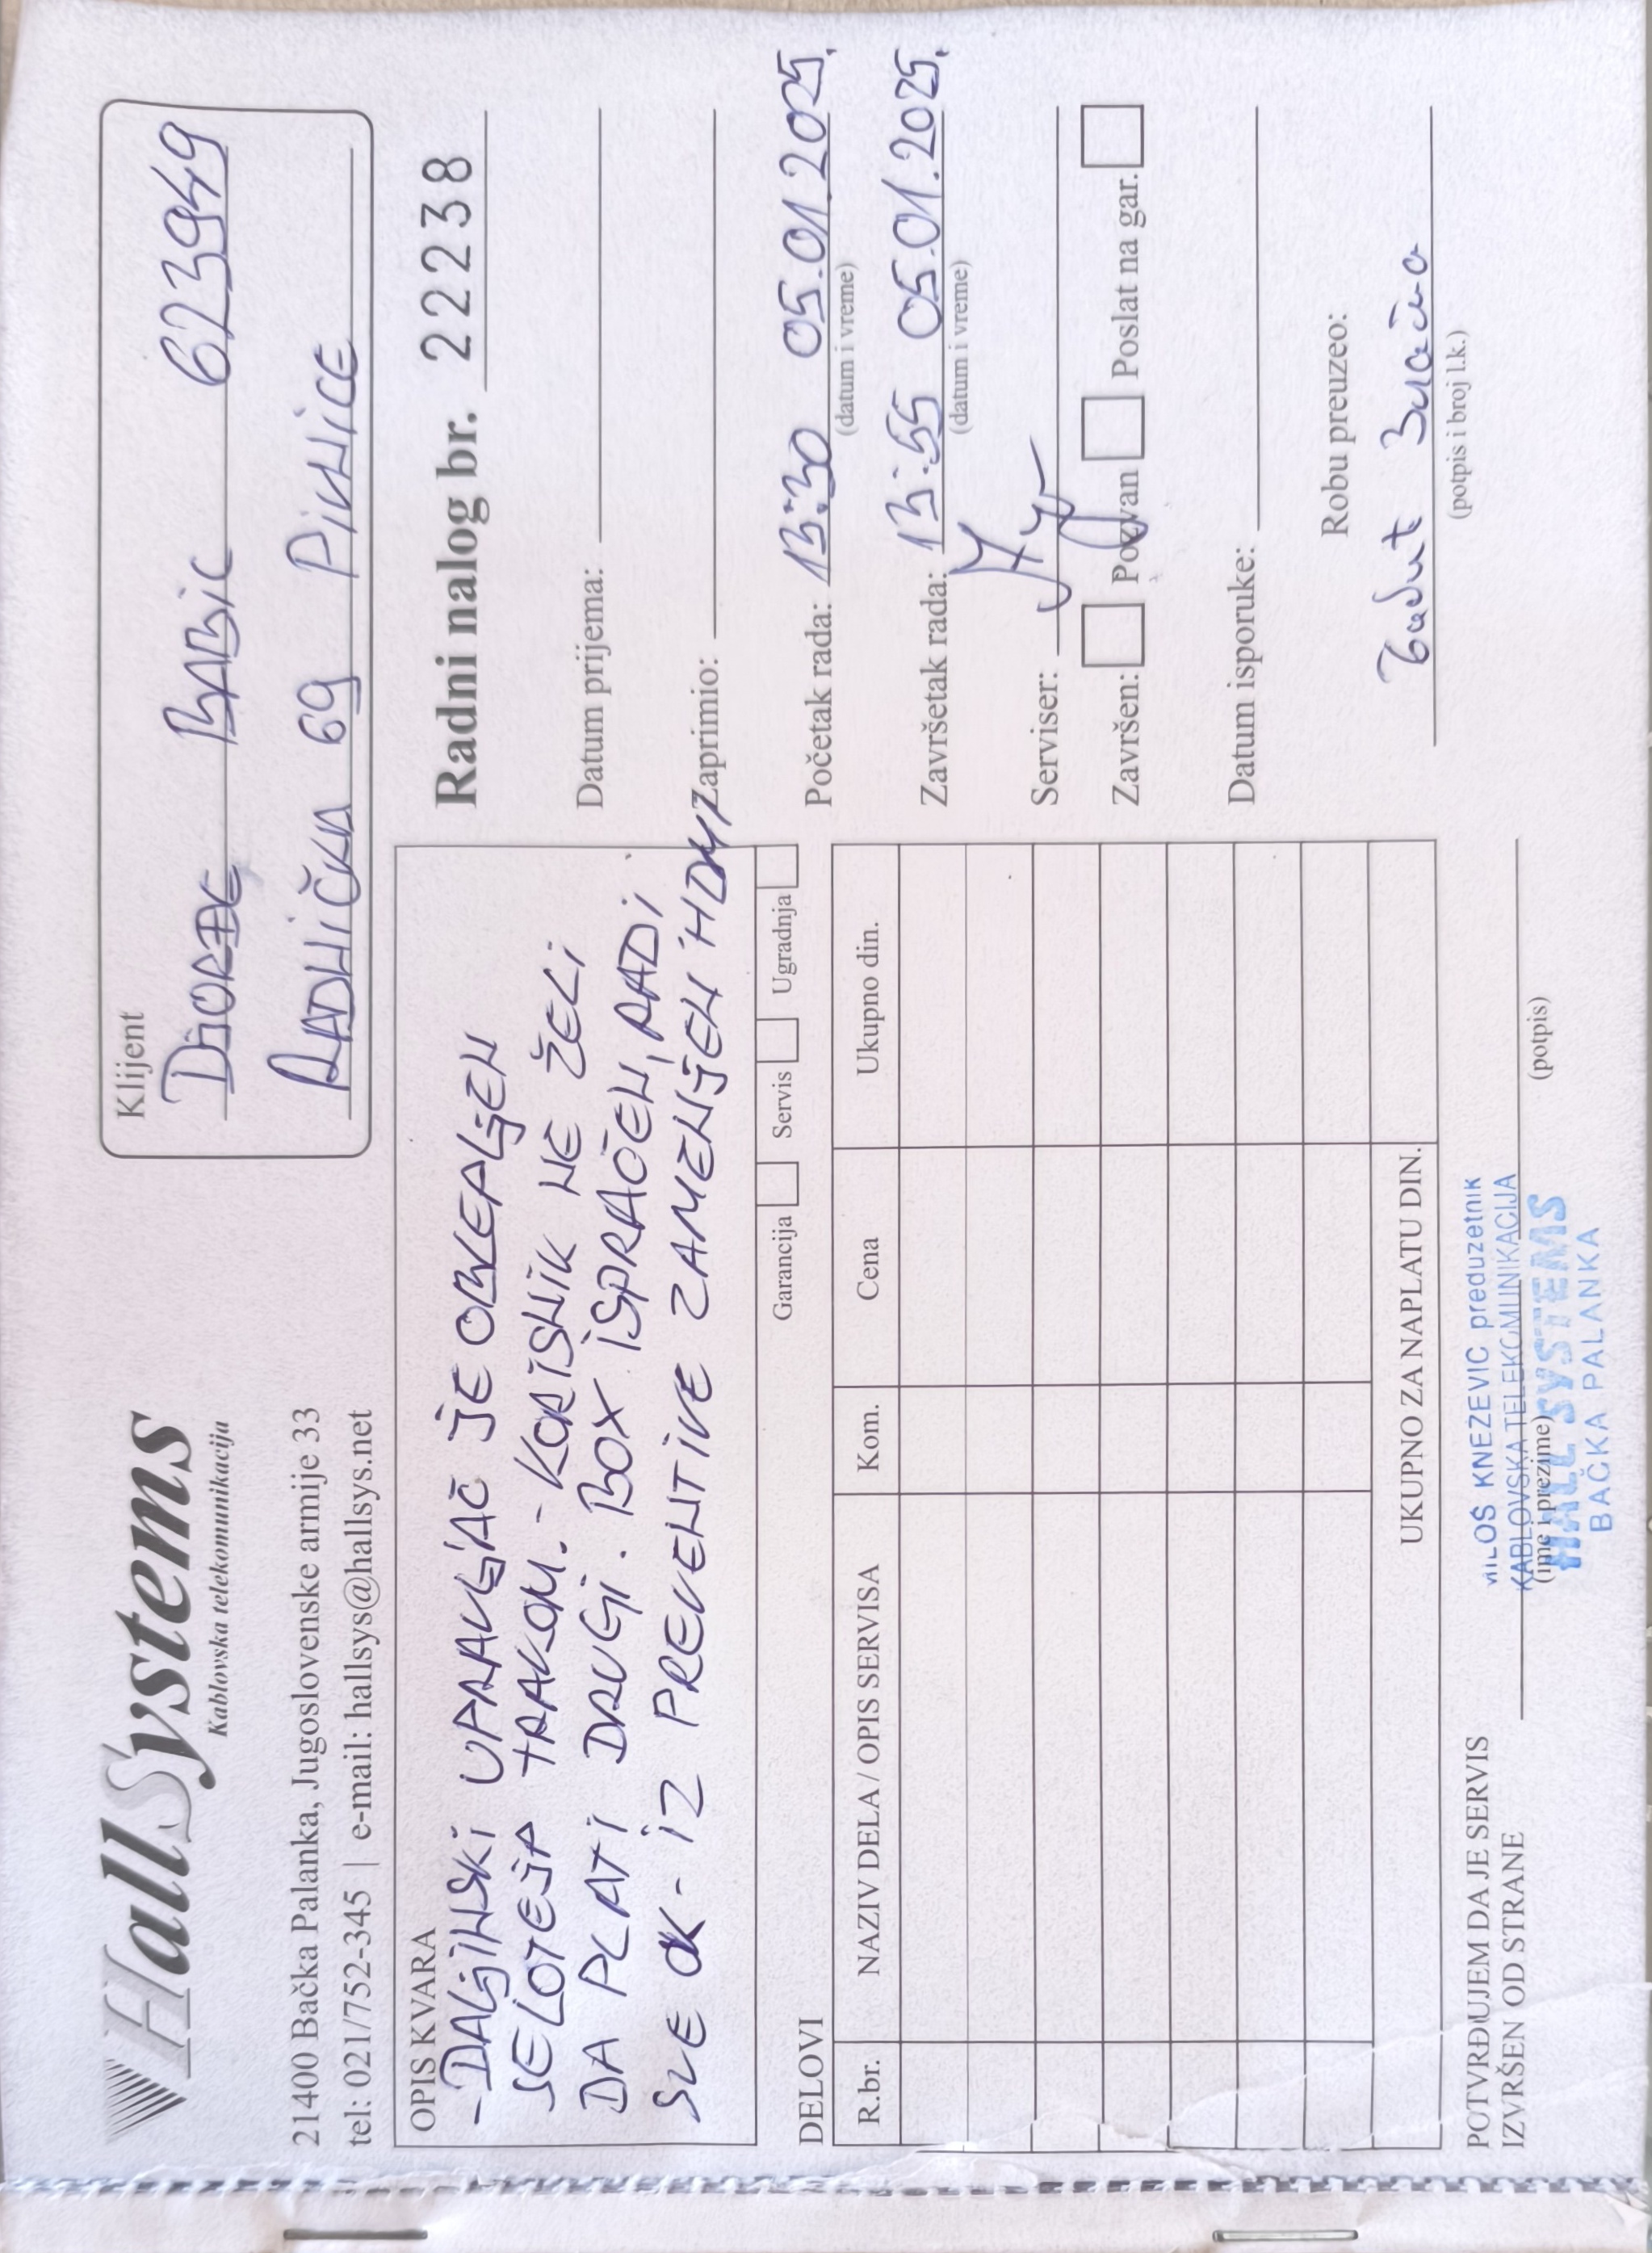 HallSystems
Kablovska telekomunikacija
21400 Bačka Palanka, Jugoslovenske armije 33
tel: 021/752-345 | e-mail: hallsys@hallsys.net
Klijent
ĐiORĐE BABIC 623949
RADNiČKA 69 PiVNiCE
OPIS KVARA
- DALjiNSKi UPRAVLjAČ jE OBLEPLjEN
SELOTEjP TRAKOM. - KORiSNiK NE ŽELi
DA PLATi DRUGi. BOX iSPRAĆEN, RADi
SVE OK - iZ PREVENTiVE ZAMENjEN HDMI
Garancija Servis Ugradnja
Radni nalog br. 22238
Datum prijema:
Zaprimio:
Početak rada: 13:30 05.01.2025.
(datum i vreme)
Završetak rada: 13:55 05.01.2025.
(datum i vreme)
Serviser:
Završen: Pozvan Poslat na gar.
Datum isporuke:
Robu preuzeo:
(potpis i broj l.k.)
DELOVI
R.br. NAZIV DELA / OPIS SERVISA Kom. Cena Ukupno din.
UKUPNO ZA NAPLATU DIN.
POTVRĐUJEM DA JE SERVIS
IZVRŠEN OD STRANE
(ime i prezime) (potpis)
MILOS KNEZEVIC preduzetnik
KABLOVSKA TELEKOMUNIKACIJA
HALL SYSTEMS
BAČKA PALANKA